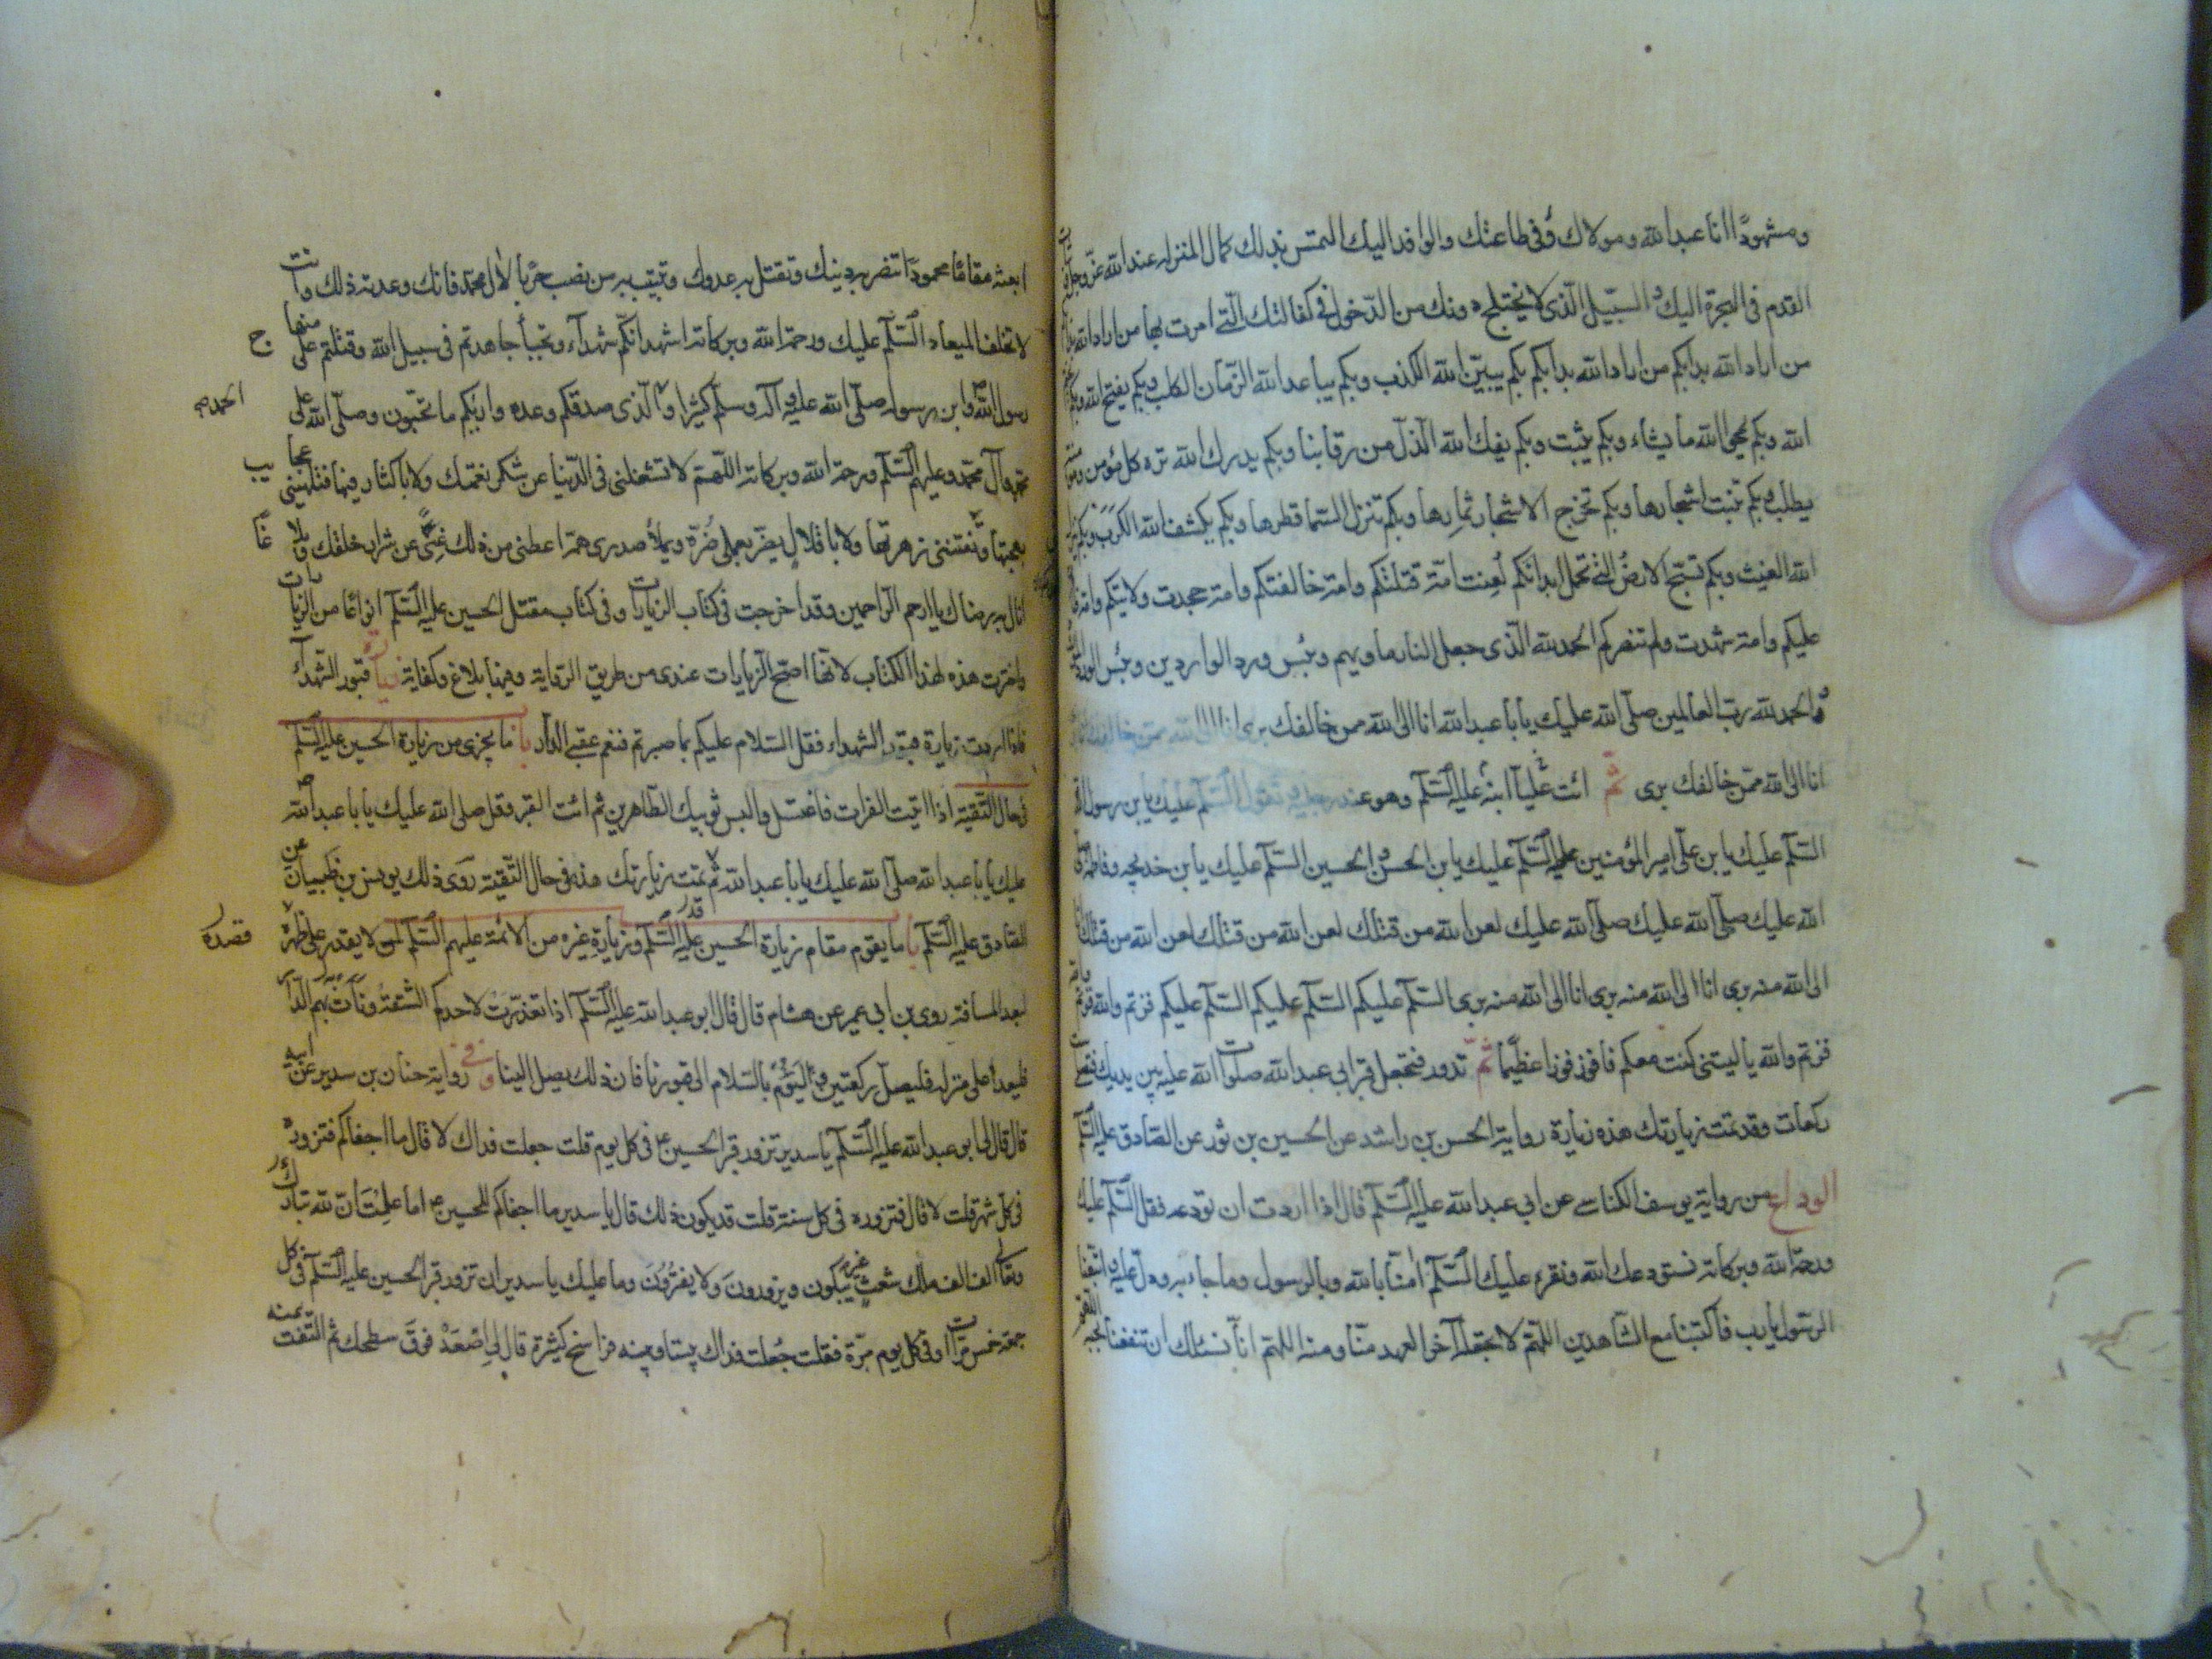 ومشهودا انا عبد الله ومولاك وفى طاعتك والوافد اليك التمس بذلك كمال المنزلة عند الله عز وجل
القدم فى الهجرة اليك والسبيل الذى لا يختلج دونك من الدخول فى كفالتك التى امرت بها من اراد الله
من اراد الله بدابكم من اراد الله بدابكم بكم يبين الله الكذب وبكم يباعد الله الزمان الكلب وبكم يفتح الله وبكم
الله وبكم يمحو الله ما يشاء وبكم يثبت وبكم يفك الله الذل من رقابنا وبكم يدرك الله تره كل مؤمن
يطلب وبكم تنبت اشجارها وبكم تخرج الاشجار ثمارها وبكم تنزل السما قطرها وبكم يكشف الله الكرب وبكم
الله الغيث وبكم تسبح الارض التى تحمل ابدانكم لعنت امة قتلتكم وامة خالفتكم وامة جحدت ولايتكم وامة
عليكم وامة شهدت ولم تنصركم الحمد لله الذى جعل النار ماويهم وبئس ورد الواردين وبئس الورد
والحمد لله رب العالمين صلى الله عليك يا با عبد الله انا الى الله ممن خالفك برى انا الى الله ممن خالفك
انا الى الله ممن خالفك برى ثم ائت عليا ابنه عليه السلم وهو عند رجليه فتقول السلم عليك يا بن رسول الله
السلم عليك يا بن على امير المؤمنين عليه السلم عليك يا بن الحسن والحسين السلم عليك يا بن خديجه وفاطمة
الله عليك صلى الله عليك صلى الله عليك لعن الله من قتلك لعن الله من قتلك لعن الله من قتلك
الى الله منه برى انا الى الله منه برى انا الى الله منه برى السلم عليكم السلم عليكم السلم عليكم فزتم والله فزتم
فزتم والله يا ليتنى كنت معكم فافوز فوزا عظيما ثم تدور فتجعل قبر ابى عبد الله صلوات الله عليه بين يديك
ركعات وقد تمت زيارتك هذه زيارة رواية الحسن بن راشد عن الحسين بن ثور عن الصادق عليه السلم
الوداع من رواية يوسف الكناسى عن ابى عبد الله عليه السلم قال اذا اردت ان تودعه فقل السلم عليك
ورحمة الله وبركاته نستودعك الله ونقرء عليك السلم امنا بالله وبالرسول وما جاء به ودل عليه واتبعنا
الرسول يا رب فاكتبنا مع الشاهدين اللهم لا تجعله اخر العهد منا ومنه اللهم انا نسئلك ان تنفعنا بحبه
ابعثه مقاما محمودا تنصر به دينك وتقتل به عدوك وتبيب به من نصب حربا لال محمد فانك وعدته ذلك وانت
لا تخلف الميعاد السلم عليك ورحمة الله وبركاته اشهد انكم شهداء ونجبا جاهدتم فى سبيل الله وقتلتم على منها ج
رسول الله وابن رسوله صلى الله عليه وآله وسلم كثيرا و الذى صدقكم وعده واريكم ما تحبون وصلى الله على
الحمد لله
محمد وآل محمد وعليهم السلم ورحمة الله وبركاته اللهم لا تشغلنى فى الدنيا عن شكر نعمتك ولا باكثار فيها فتلهينى عجايب
بهجتها وتفتننى زهرتها ولا باقلال يضر بعملى ضره ويملأ صدرى همه اعطنى من ذلك غنى عن شرار خلقك وبلاغا
انال به رضاك يا ارحم الراحمين وقد اخرجت فى كتاب الزيارات وفى كتاب مقتل الحسين عليه السلم انواعا من الزيارات
واخترت هذه لهذا الكتاب لانها اصح الزيارات عندى من طريق الرواية وفيها بلاغ وكفاية قبور الشهداء
فاذا اردت زيارة قبور الشهداء فقل السلام عليكم بما صبرتم فنعم عقبى الدار با ما يجزى من زيارة الحسين عليه السلم
فى حال التقية اذا اتيت الفرات فاغتسل والبس ثوبيك الطاهرين ثم ائت القبر وقل صلى الله عليك يا با عبد الله صلى الله
عليك يا با عبد الله صلى الله عليك يا با عبد الله ثم تمت زيارتك هذه فى حال التقية روى ذلك يونس بن ظبيان عن
الصادق عليه السلم با ما يقوم مقام زيارة الحسين عليه السلم وزيارة غيره من الائمة عليهم السلم لمن لا يقدر على قصده
لبعد المسافة روى بن ابى عمير عن هشام قال قال ابو عبد الله عليه السلم اذا تعذرت لاحدكم الشقة ونأت بهم الدار
فليعد اعلى منزله فليصل ركعتين وليؤم بالسلام الى قبورنا فان ذلك يصل الينا وفى رواية حنان بن سدير عن ابيه
قال قال لى ابو عبد الله عليه السلم يا سدير تزور قبر الحسين ع فى كل يوم قلت جعلت فداك لا قال ما اجفاكم فتزوره
فى كل شهر قلت لا قال فتزوره فى كل سنة قلت قد يكون ذلك قال يا سدير ما اجفاكم للحسين ع اما علمت ان لله تبارك
وتعالى الف الف ملك شعث غبر يبكون ويزورون ولا يفترون وما عليك يا سدير ان تزور قبر الحسين عليه السلم فى كل
جمعة خمس مرات او فى كل يوم مرة فقلت جعلت فداك بيننا وبينه فراسخ كثيرة قال لى اصعد فوق سطحك ثم التفت يمنه